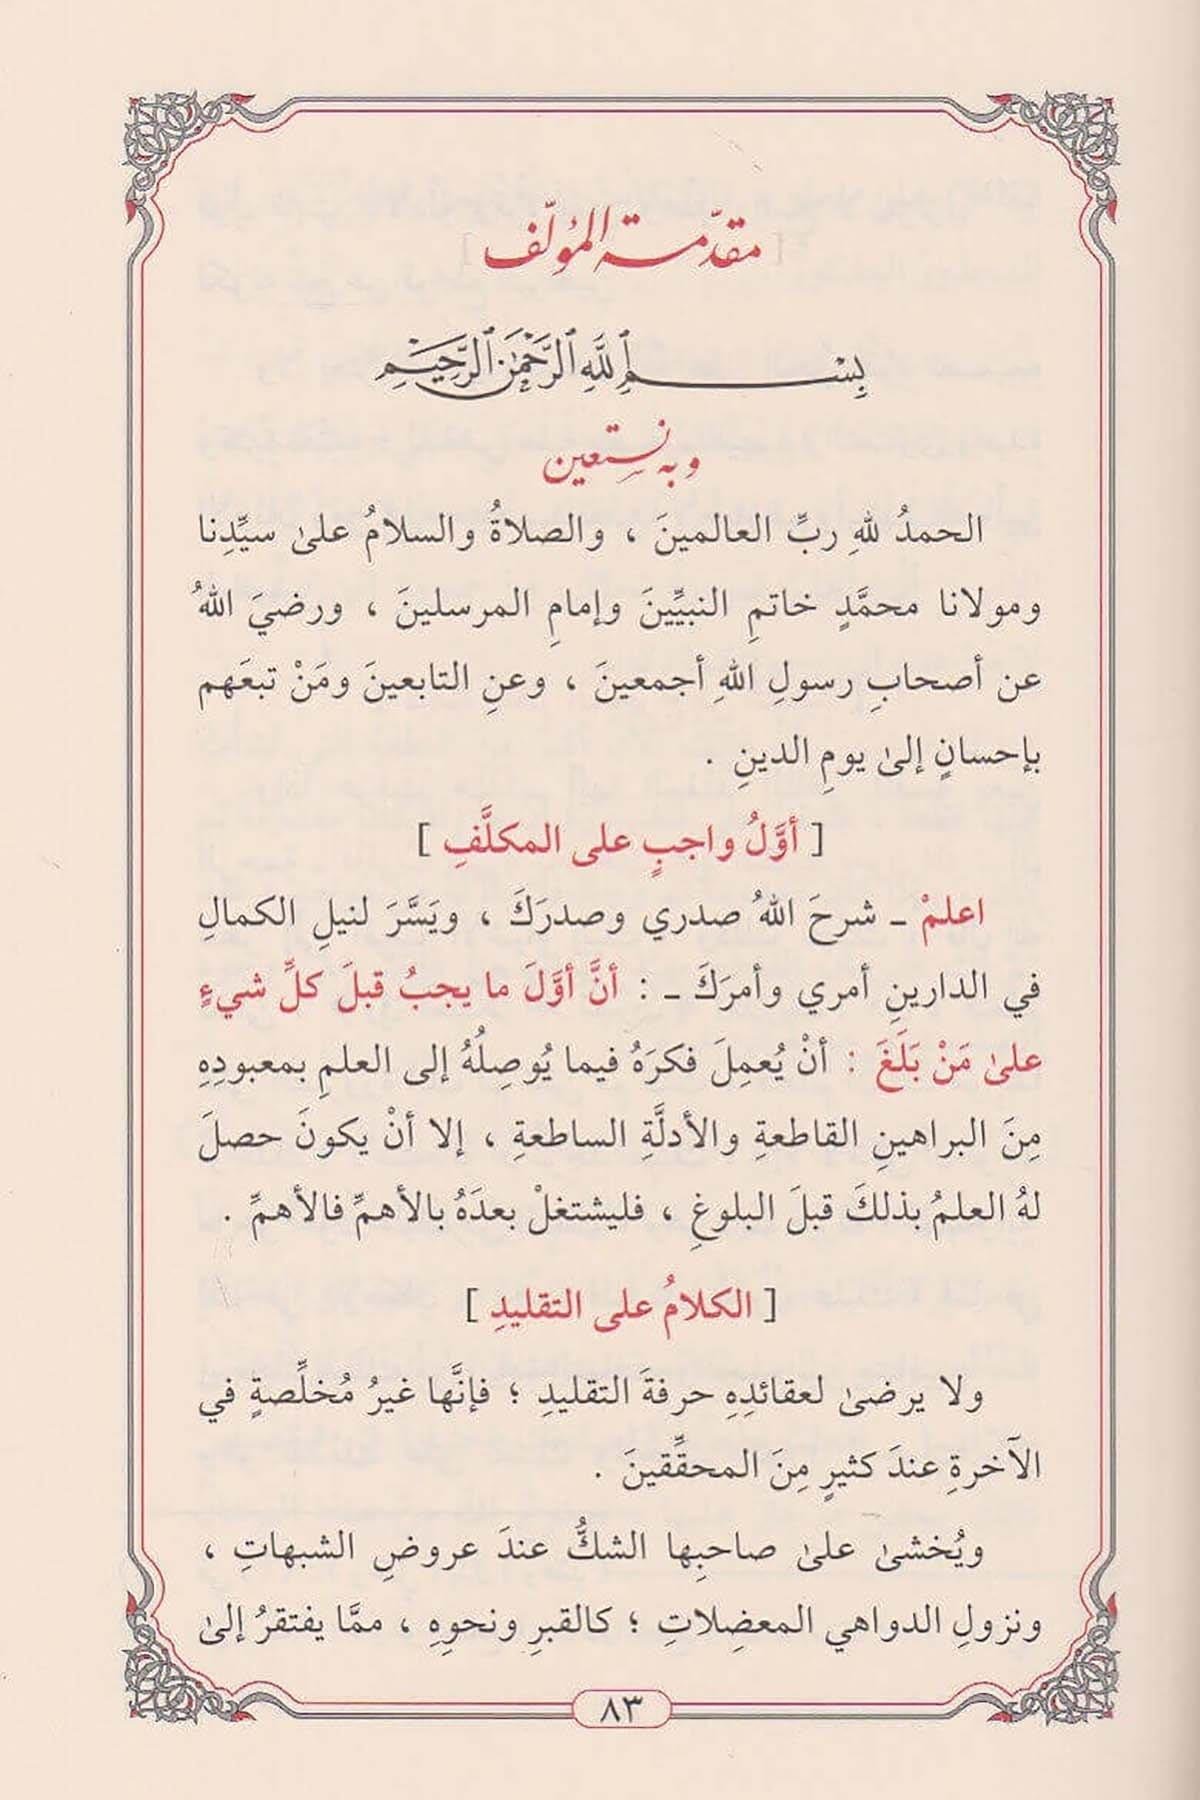 مقدّمة المؤلّف
بِسْمِ ٱللَّهِ ٱلرَّحْمَٰنِ ٱلرَّحِيمِ
وبه نستعين
الحمدُ للهِ ربِّ العالمينَ ، والصلاةُ والسلامُ علىٰ سيِّدِنا
ومولانا محمَّدٍ خاتمِ النبيِّينَ وإمامِ المرسلينَ ، ورضيَ اللهُ
عن أصحابِ رسولِ اللهِ أجمعينَ ، وعنِ التابعينَ ومَنْ تبعَهم
بإحسانٍ إلىٰ يومِ الدينِ .
[ أوَّلُ واجبٍ على المكلَّفِ ]
اعلمْ ـ شرحَ اللهُ صدري وصدرَكَ ، ويَسَّرَ لنيلِ الكمالِ
في الدارينِ أمري وأمرَكَ ـ : أنَّ أوَّلَ ما يجبُ قبلَ كلِّ شيءٍ
علىٰ مَنْ بَلَغَ : أنْ يُعمِلَ فكرَهُ فيما يُوصِلُهُ إلى العلمِ بمعبودِهِ
مِنَ البراهينِ القاطعةِ والأدلَّةِ الساطعةِ ، إلا أنْ يكونَ حصلَ
لهُ العلمُ بذلكَ قبلَ البلوغِ ، فليشتغلْ بعدَهُ بالأهمِّ فالأهمِّ .
[ الكلامُ على التقليدِ ]
ولا يرضىٰ لعقائدِهِ حرفةَ التقليدِ ؛ فإنَّها غيرُ مُخلِّصةٍ في
الآخرةِ عندَ كثيرٍ مِنَ المحقِّقينَ .
ويُخشىٰ علىٰ صاحبِها الشكُّ عندَ عروضِ الشبهاتِ ،
ونزولِ الدواهي المعضِلاتِ ؛ كالقبرِ ونحوِهِ ، ممَّا يفتقرُ إلىٰ
٨٣